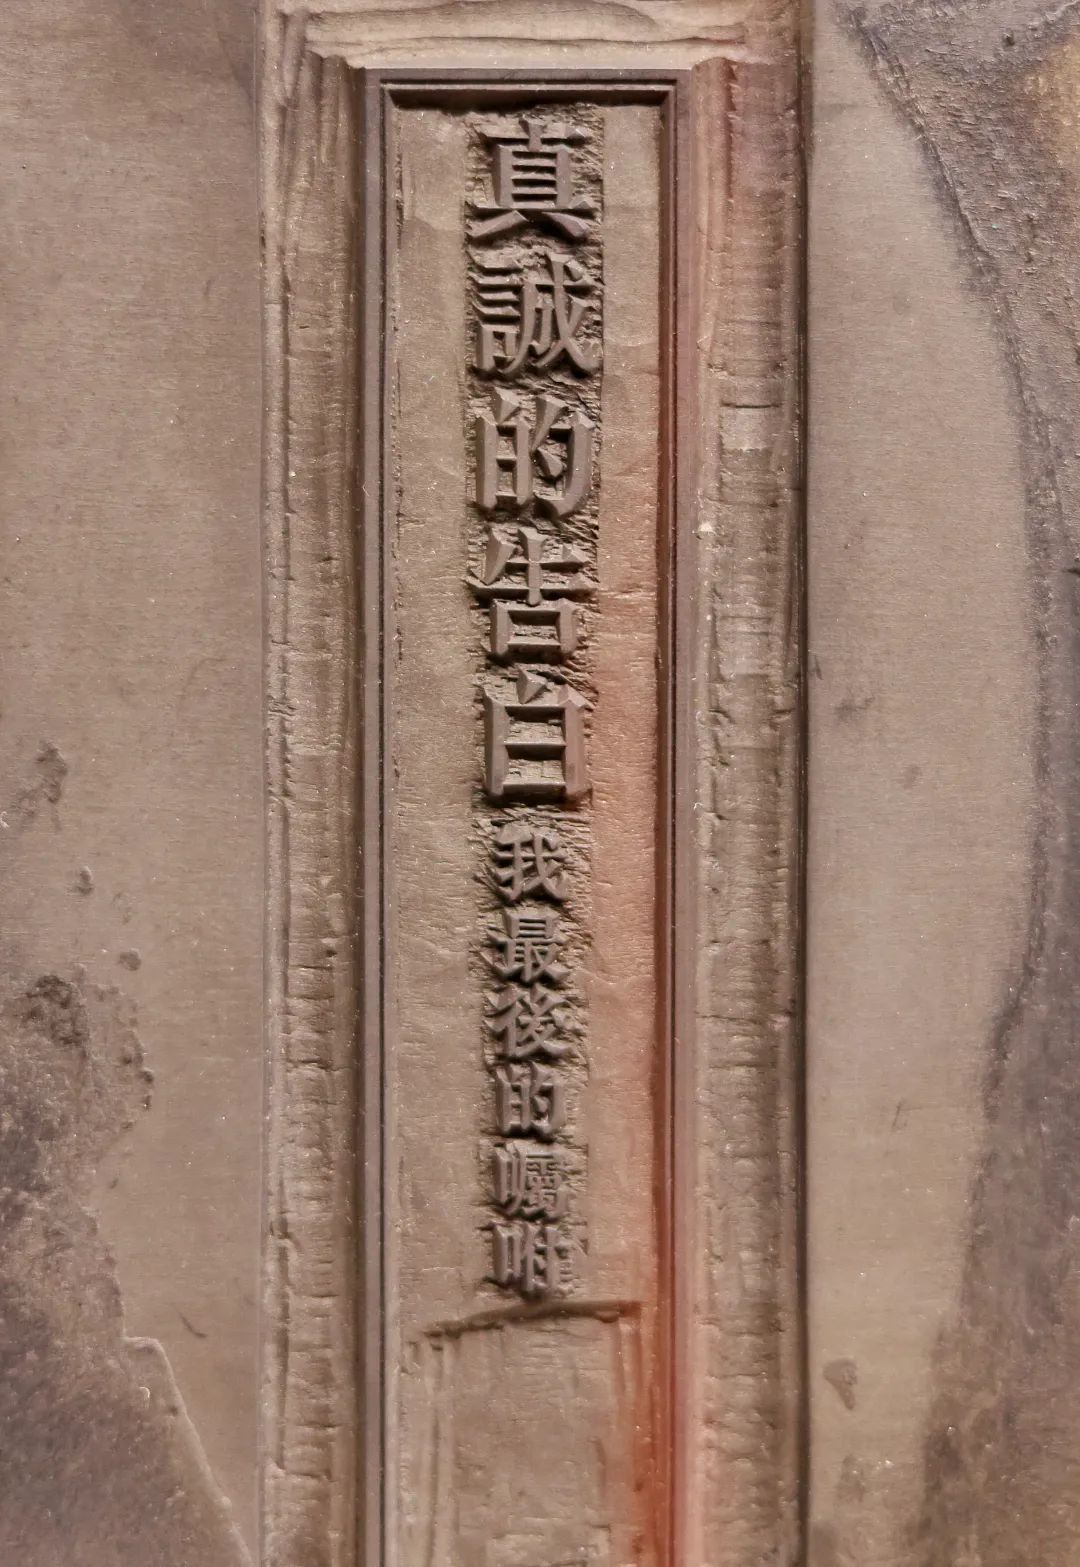 真誠的告白我最後的囑咐